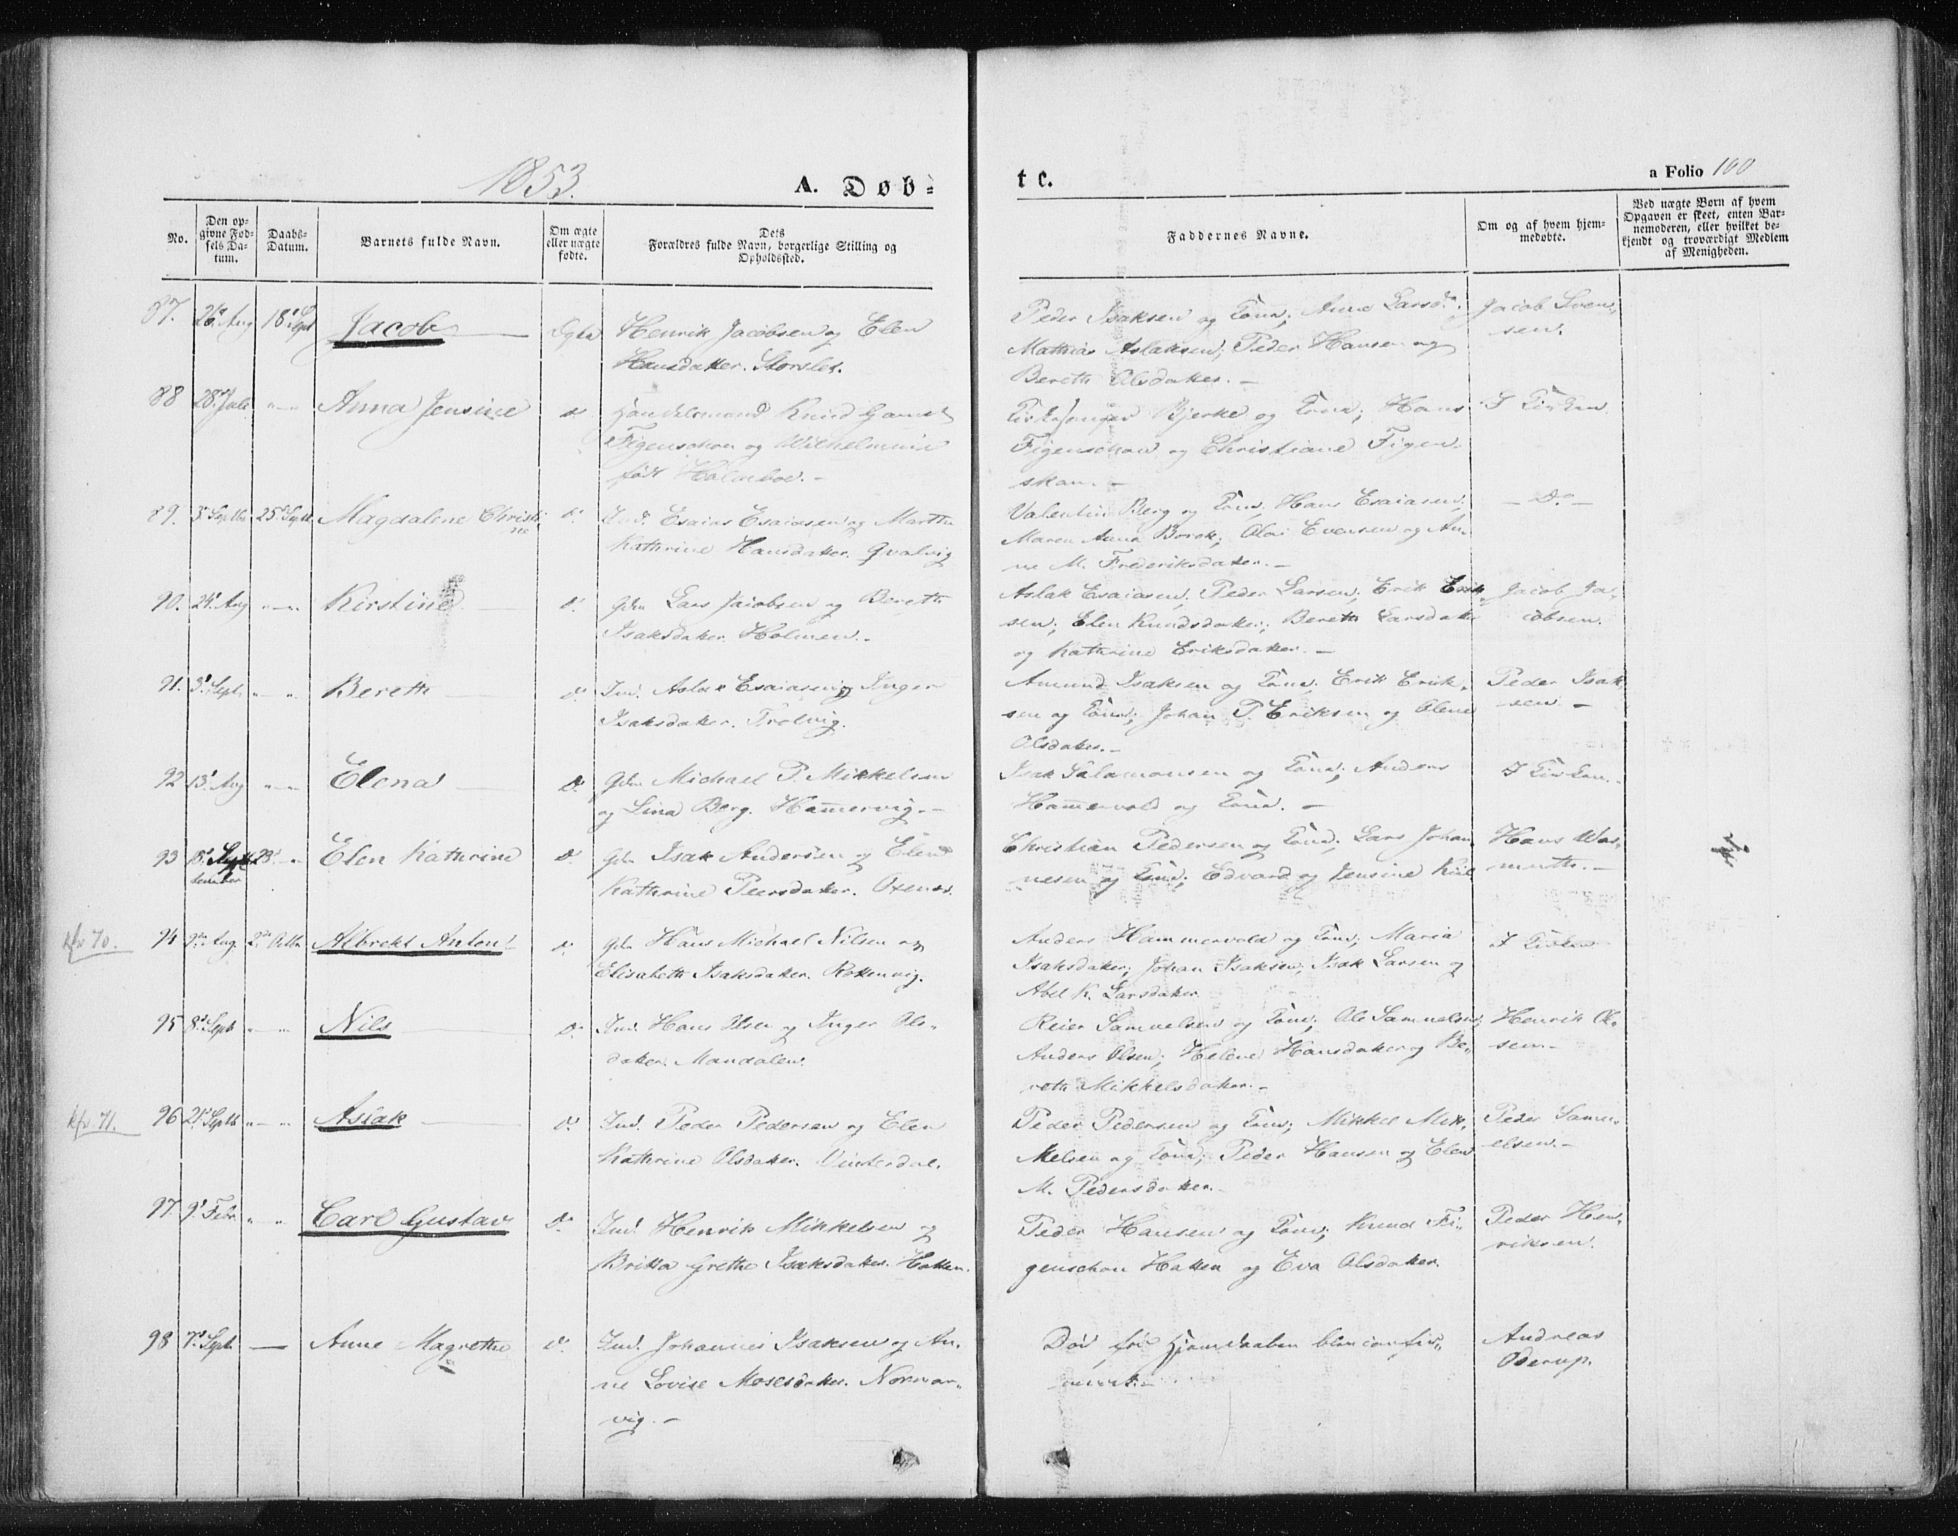 1853.
A. Døb=
te.
a Folio 100
No.
Den op-
givne Fød-
sels Da-
tum.
Daabs-
Datum.
Barnets fulde Navn.
Om ægte
eller uægte
fødte.
Dets
Forældres fulde Navn, borgerlige Stilling og
Opholdssted.
Faddernes Navne.
Om og af hvem hjem-
medøbte.
Ved uægte Børn af hvem
Opgaven er skeet, enten Bar-
nemoderen, eller hvilket be-
kjendt og troværdigt Medlem
af Menigheden.
87. 26 Aug 18 Sept Jacob Ægte Henrik Jacobsen og Elen
Hansdatter. Storslet.
Peder Isaksen og Kone; Anne Larsd.
Mathias Aslaksen; Peder Hansen og
Bereth Olsdatter. –
Jacob Iven-
sen.
88 28 Juli " " Anna Jensine do Handelsmand Knud Gamst
Figenschou og Wilhelmine
født Holmboe. –
Kirkesanger Bjerke og Kone; Hans
Figenschou og Christiane Figen-
skau. –
I Kirken
89. 3 Septbr 25 Septb Magdalene Christi
ne do. Ind. Esaias Esaiasen og Marthe
Kathrine Hansdatter. Qvalvig
Valentin Berg og Kone, Hans Esaiasen,
Maren Anna Borch; Olai Evensen og An-
ne M. Frederiksdatter. –
– Do –
90. 24 Aug " " Kirstine do. Gdm Lars Jacobsen og Bereth
Isaksdatter Holmen. –
Aslak Esaiasen; Peder Larsen; Erik Erik-
sen; Elen Knudsdatter; Bereth Larsdatter
og Kathrine Eriksdatter. –
Jacob Ja-
cobsen.
91. 3 Sept. " " Bereth do. Ind. Aslak Esaiasen og Inger
Isaksdatter. Trolvig.
Amund Isaksen og Kone; Erik Erik-
sen og Kone; Johan P. Eriksen og Olene
Olsdatter. –
Peder Isak
sen –
92 13 Aug " " Elena do Gdm Michael P. Mikkelsen
og Lina Berg. Hamervig. –
Isak Salamonsen og Kone; Anders
Hamervold og Kone. –
I Kirken. –
93 15 Sep
tember 23 " Elen Kathrine do Gdm Isak Andersen og Elen
Kathrine Peersdatter. Oxenes.
Christian Pedersen og Kone; Lars Johan
nesen og Kone; Edvard og Jensine Kiil
Hans Was-
muth. –
kfr 70. 94 9 Aug. 2 Octb Albrekt Anton do. Gdm Hans Michael Nilsen og
Elisabeth Isaksdatter. Rottenvig.
Anders Hammervold og Kone; Maria
Isaksdatter; Johan Isaksen; Isak Larsen og
Abel K. Larsdatter
I Kirken
95 8 Sept " " Nils do. Ind. Hans Olsen og Inger Ols-
datter. Mandalen.
Reier Samuelsen og Kone, Ole Samuelsen,
Anders Olsen; Helene Hansdatter og Be-
reth Mikkelsdatter. –
Henrik Ol-
sen. –
kfr 71. 96 21 Septb " " Aslak do. Ind. Peder Pedersen og Elen
Kathrine Olsdatter. Vinterdal.
Peder Pedersen og Kone; Mikkel Mik-
kelsen og Kone; Peder Hansen og Elen
M. Pedersdatter. –
Peder Samu-
elsen. –
97 9 Febr " " Carl Gustav do Ind. Henrik Mikkelsen og
Britha Grethe Isaksdatter. Hatten.
Peder Hansen og Kone; Knud Fi-
genschou Hatten og Eva Olsdatter.
Peder Hen-
riksen.
98 7 Sept. — Anne Magrethe do. Ind. Johannes Isaksen og An-
ne Lovise Mosesdatter. Nordman-
vig. –
Død før Hjemdaaben blev confir-
meert. –
Andreas
Oderup.